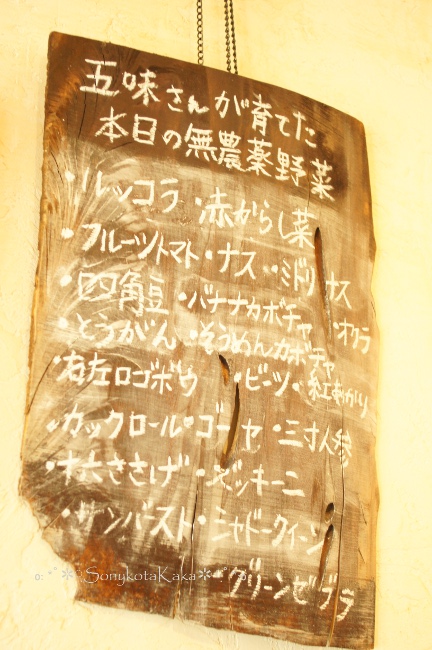 五味さんが育てた
本日の無農薬野菜
・ルッコラ ・赤からし菜
・フルーツトマト・ナス ・ミドリナス
・四角豆 ・バナナカボチャ ・オクラ
・とうがん ・そうめんカボチャ
・ゴボウ ・ビーツ ・紅あかり
・カックロール・ゴーヤ ・三寸人参
・十六ささげ ・ズッキーニ
・サンバースト・シャドークィーン
・グリーンゼブラ
SonykotaKaka